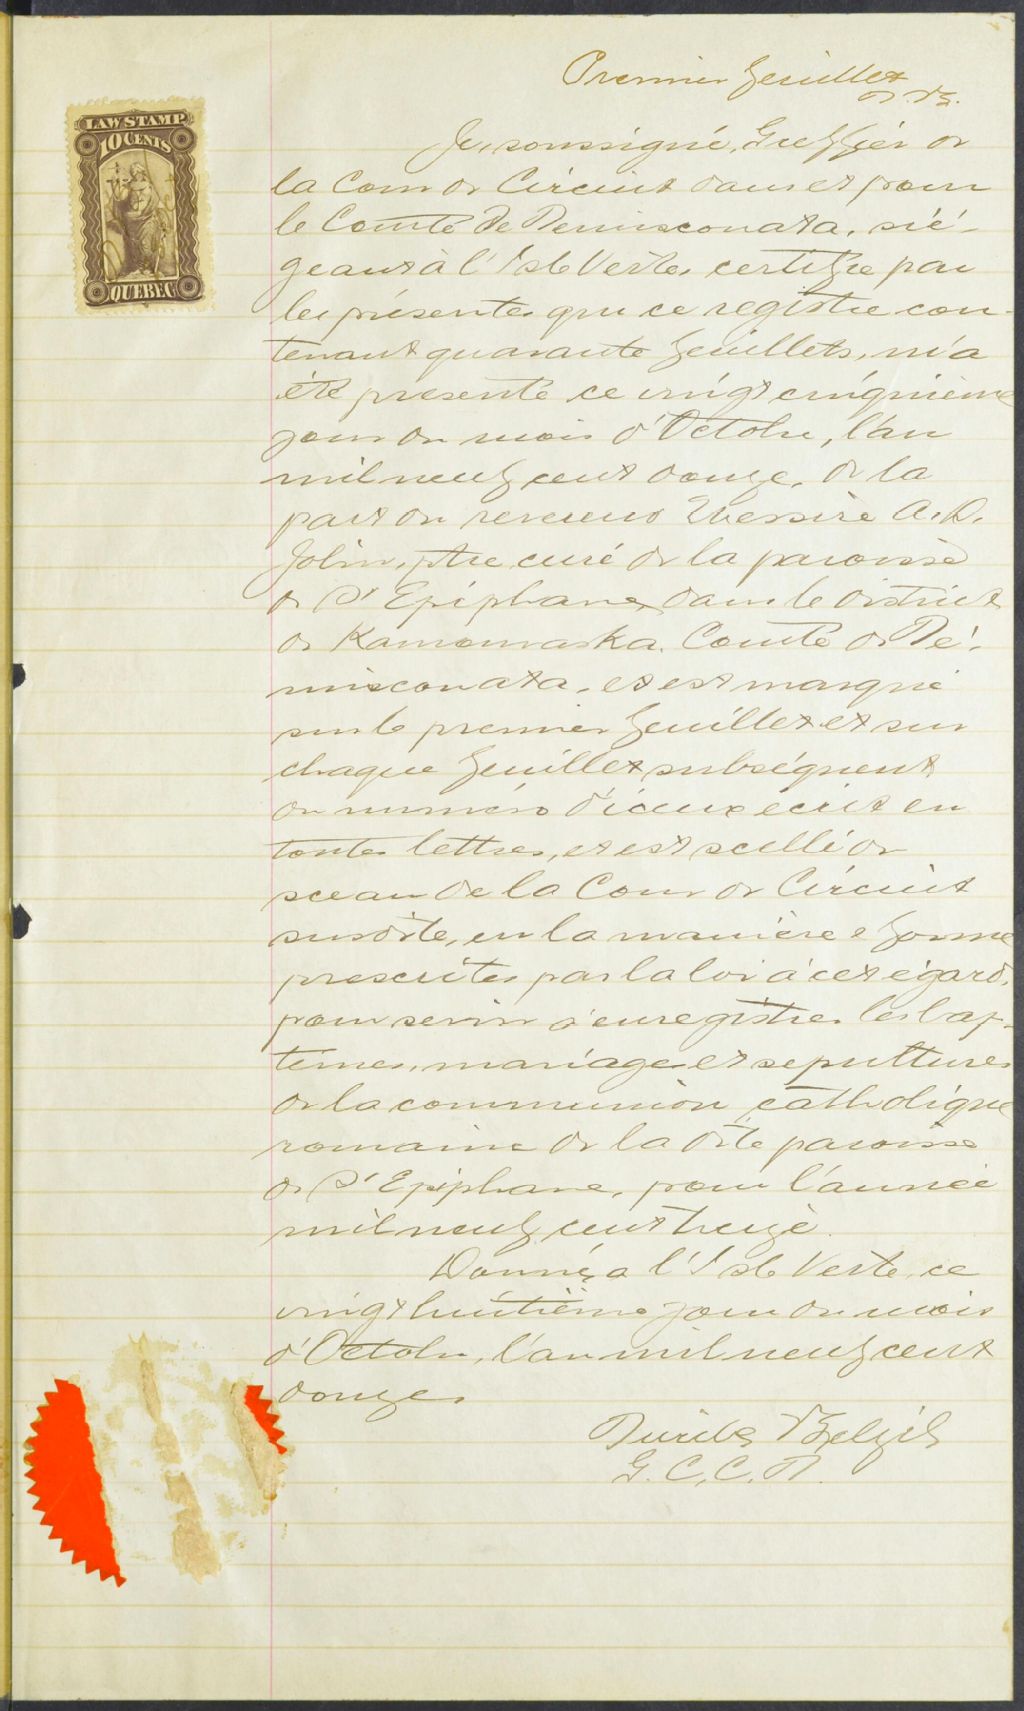 Premier feuillet
D. B.
LAW STAMP
10 CENTS
QUEBEC
Je, soussigné, Greffier de
la Cour de Circuit dans et pour
le Comté de Témisconata, sié-
geant à l'Isle Verte, certifie par
les présentes que ce registre con-
tenant quarante feuillets, m'a
été présenté ce vingt cinquième
jour du mois d'Octobre, l'an
mil neuf cent douze, de la
part du révérend Messire A. D.
Jolin, ptre, curé de la paroisse
de St Epiphane, dans le district
de Kamouraska, Comté de Té-
misconata, et est marqué
sur le premier feuillet et sur
chaque feuillet subséquent
du numéro d'iceux écrit en
toutes lettres, et est scellé du
sceau de la Cour de Circuit
susdite, en la manière & forme
prescrites par la loi à cet égard,
pour servir à enregistrer les bap-
têmes, mariages et sepultures
de la communion catholique
romaine de la dite paroisse
de St Epiphane, pour l'année
mil neuf cent treize.
Donné, à l'Isle Verte, ce
vingt huitième jour du mois
d'Octobre, l'an mil neuf cent
douze.
Belzil
G. C. C. T.